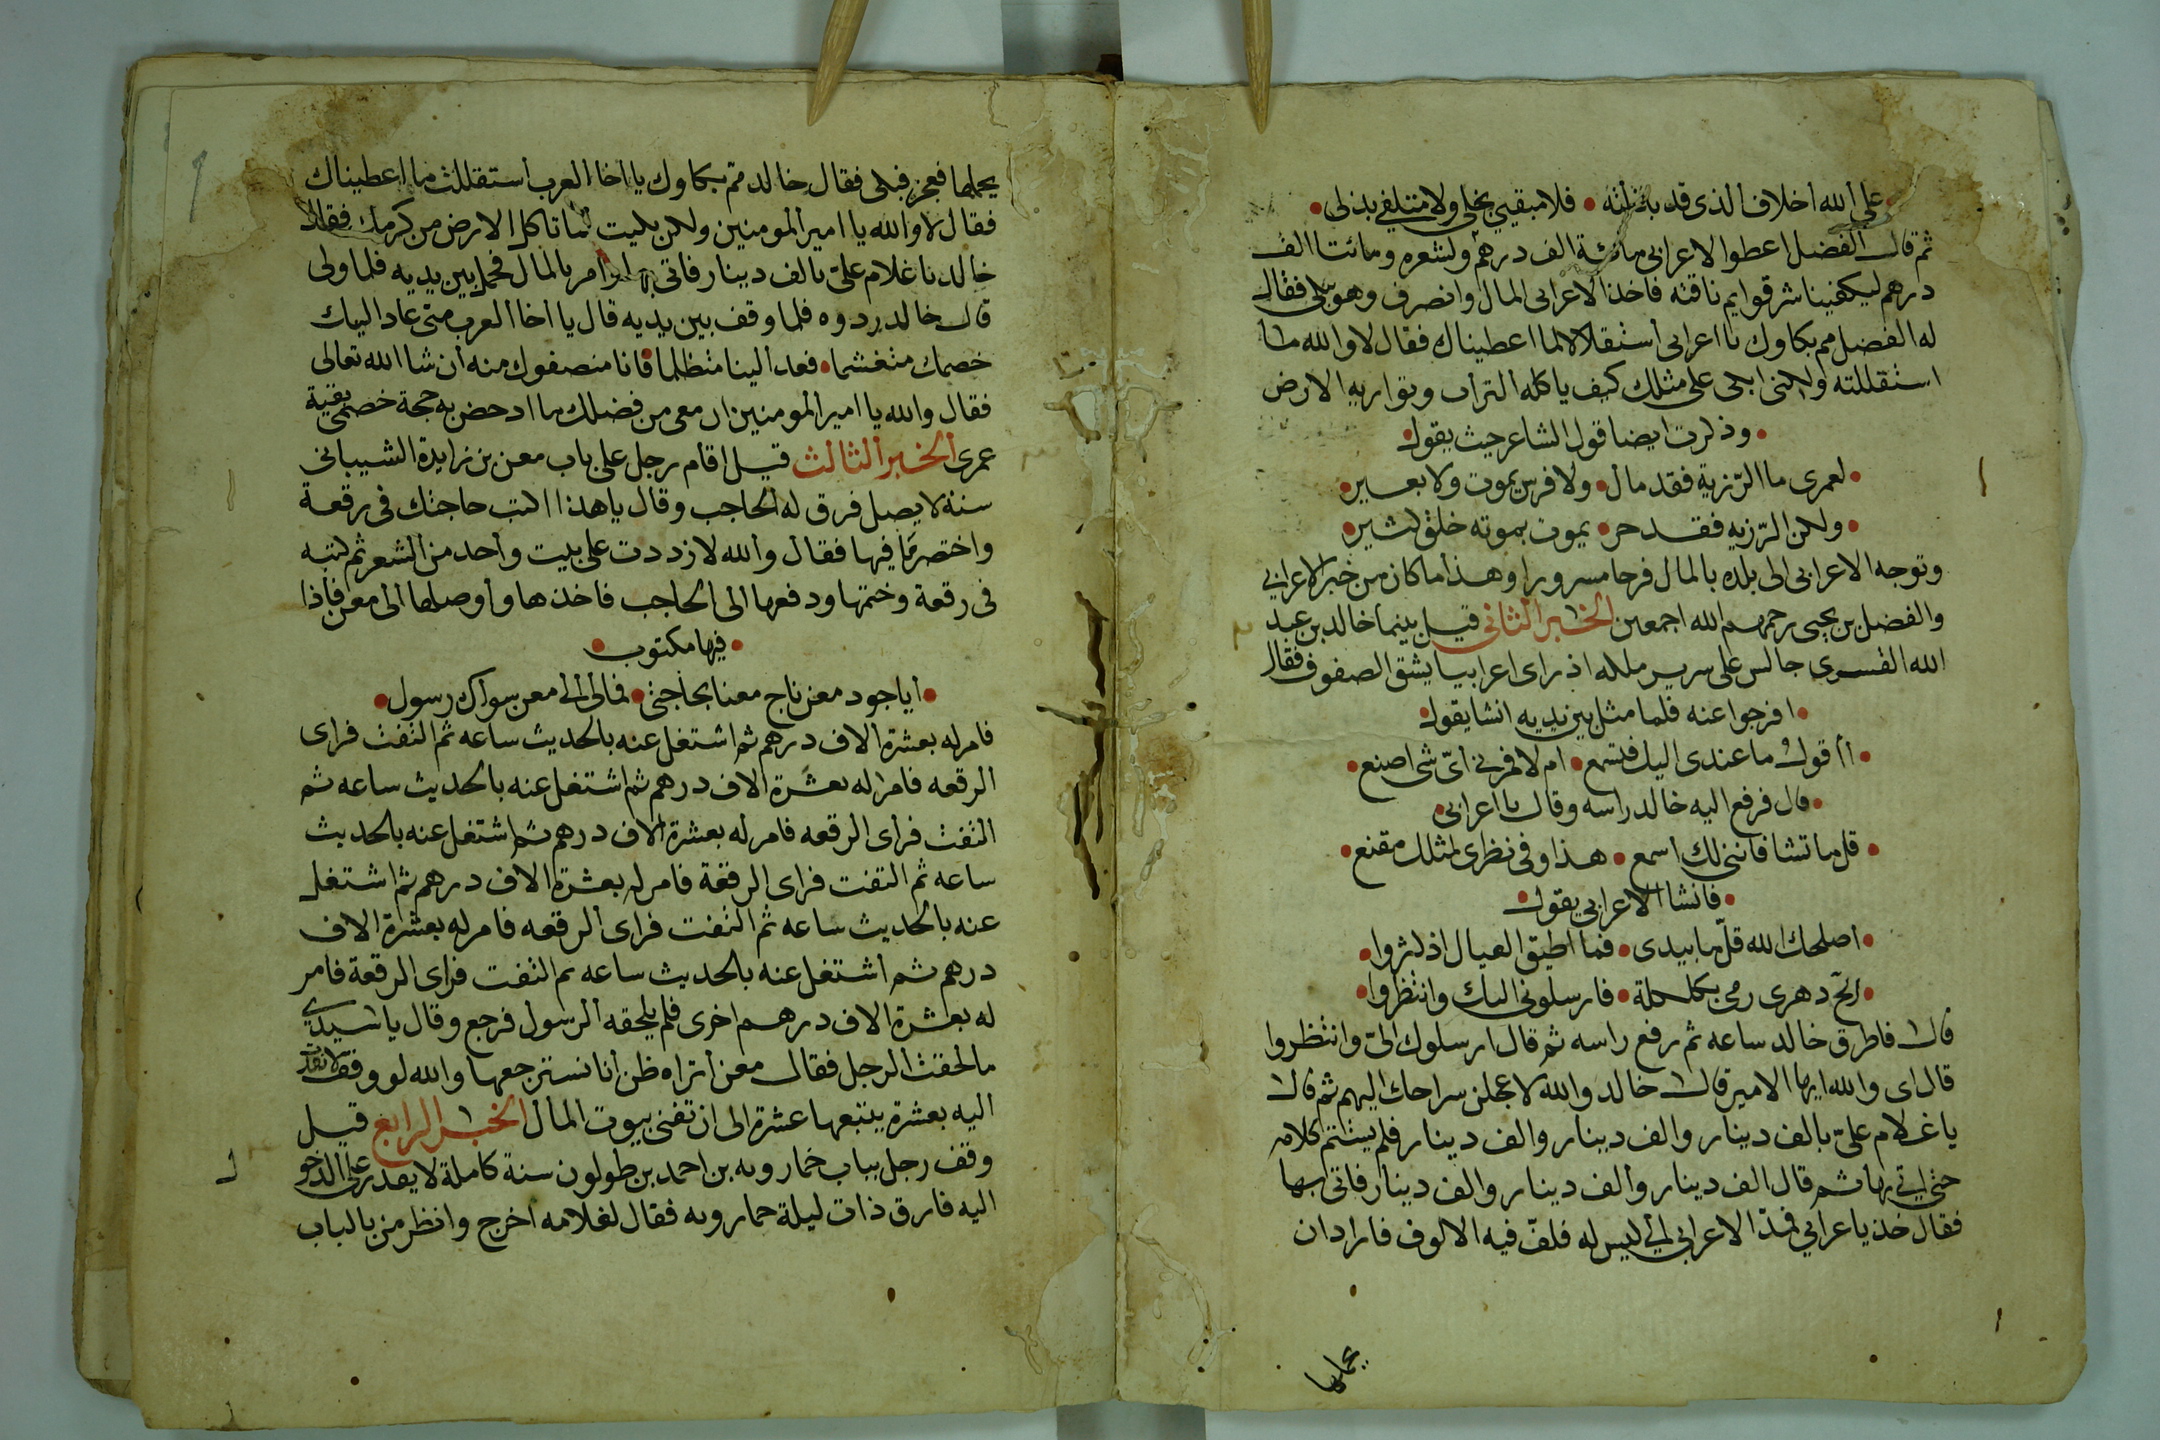 على الله اخلاف الذى قد بذلته • فلا مبقيي بخلى ولا متلفي بذلى •
ثم قال الفضل اعطوا الاعرابى مائة الف درهم ولشعره ومائتا الف
درهم ليكفينا شر قوايم ناقته فاخذ الاعرابى المال وانصرف وهو يبكى فقال
له الفضل مم بكاوك يا اعرابى أستقلالا لما اعطيناك فقال لا والله ما
استقللته ولكنى ابكى على مثلك كيف ياكله التراب وتواريه الارض
• وذكرت ايضا قول الشاعر حيث يقول •
• لعمرى ما الرزية فقد مال • ولا فرس يموت ولا بعير •
• ولكن الرزيه فقد حر • يموت بموته خلق كثير •
وتوجه الاعرابى الى بلده بالمال فرحا مسرورا وهذا ما كان من خبر الاعرابى
والفضل بن يحيى رحمهم الله اجمعين الخبر الثانى قيل بينما خالد بن عبد
الله القسرى جالس على سرير ملكه اذ راى اعرابيا يشق الصفوف فقال
• افرجوا عنه فلما مثل بين يديه انشا يقول •
• أأقول ما عندى اليك فتسمع • ام لا فمرنى أىّ شى اصنع •
• قال فرفع اليه خالد راسه وقال يا اعرابى •
• قل ما تشا فاننى لك اسمع • هذا وفى نظرى لمثلك مقنع •
• فانشا الاعرابى يقول •
• اصلحك الله قلّ ما بيدى • فما اطيق العيال اذ كثروا •
• الحّ دهرى رمى بكلكله • فارسلونى اليك وانتظروا •
قال فاطرق خالد ساعه ثم رفع راسه ثم قال ارسلوك الىّ وانتظروا
قال اى والله ايها الامير قال خالد والله لاعجلن سراحك اليهم ثم قال
يا غلام علىّ بالف دينار والف دينار والف دينار فلم يستتم كلامه
حتى اتى بها ثم قال الف دينار والف دينار والف دينار فاتى بها
فقال خذ يا عرابي فمدّ الاعرابى له فلفّ فيه الالوف فاراد ان
يحملها
يحملها فعجز فبكى فقال خالد مم بكاوك يا اخا العرب أستقللت ما اعطيناك
فقال لا والله يا امير المومنين ولكن بكيت لما تاكل الارض من كرمك فقال
خالد يا غلام علىّ بالف دينار فاتى بها امر بالمال فحمل بين يديه فلما ولى
قال خالد ردوه فلما وقف بين يديه قال يا أخا العرب متى عاد اليك
خصمك متغشما • فعد الينا متظلما • فانا منصفوك منه ان شا الله تعالى
فقال والله يا امير المومنين ان معى من فضلك ما ادحض به حجة خصمى بقية
عمرى الخبر الثالث قيل اقام رجل على باب معن بن زايدة الشيبانى
سنة لا يصل فرق له الحاجب وقال يا هذا اكتب حاجتك فى رقعة
واختصر ما فيها فقال والله لا زددت على بيت واحد من الشعر ثم كتبه
فى رقعة وختمها ودفعها الى الحاجب فاخذها وأوصلها الى معن فاذا
• فيها مكتوب •
• أيا جود معن ناج معنا بحاجتى • فمالى الى معن سواك رسول •
فامر له بعشرة الاف درهم ثم اشتغل عنه بالحديث ساعه ثم التفت فراى
الرقعه فامر له بعشرة الاف درهم ثم اشتغل عنه بالحديث ساعه ثم
التفت فرأى الرقعه فامر له بعشرة الاف درهم ثم اشتغل عنه بالحديث
ساعه ثم التفت فراى الرقعة فامر له بعشرة الاف درهم ثم اشتغل
عنه بالحديث ساعه ثم التفت فراى الرقعه فامر له بعشرة الاف
درهم ثم اشتغل عنه بالحديث ساعه ثم التفت فراى الرقعة فامر
له بعشرة الاف درهم اخرى فلم يلحقه الرسول فرجع وقال يا سيدى
ما لحقت الرجل فقال معن أتراه ظن أنا نسترجعها والله لو وقف لانفذت
اليه بعشرة يتبعها عشرة الى ان تفنى بيوت المال الخبر الرابع قيل
وقف رجل بباب خمارويه بن احمد بن طولون سنة كاملة لا يقدر على الدخول
اليه فارق ذات ليلة خمارويه فقال لغلامه اخرج وانظر من بالباب